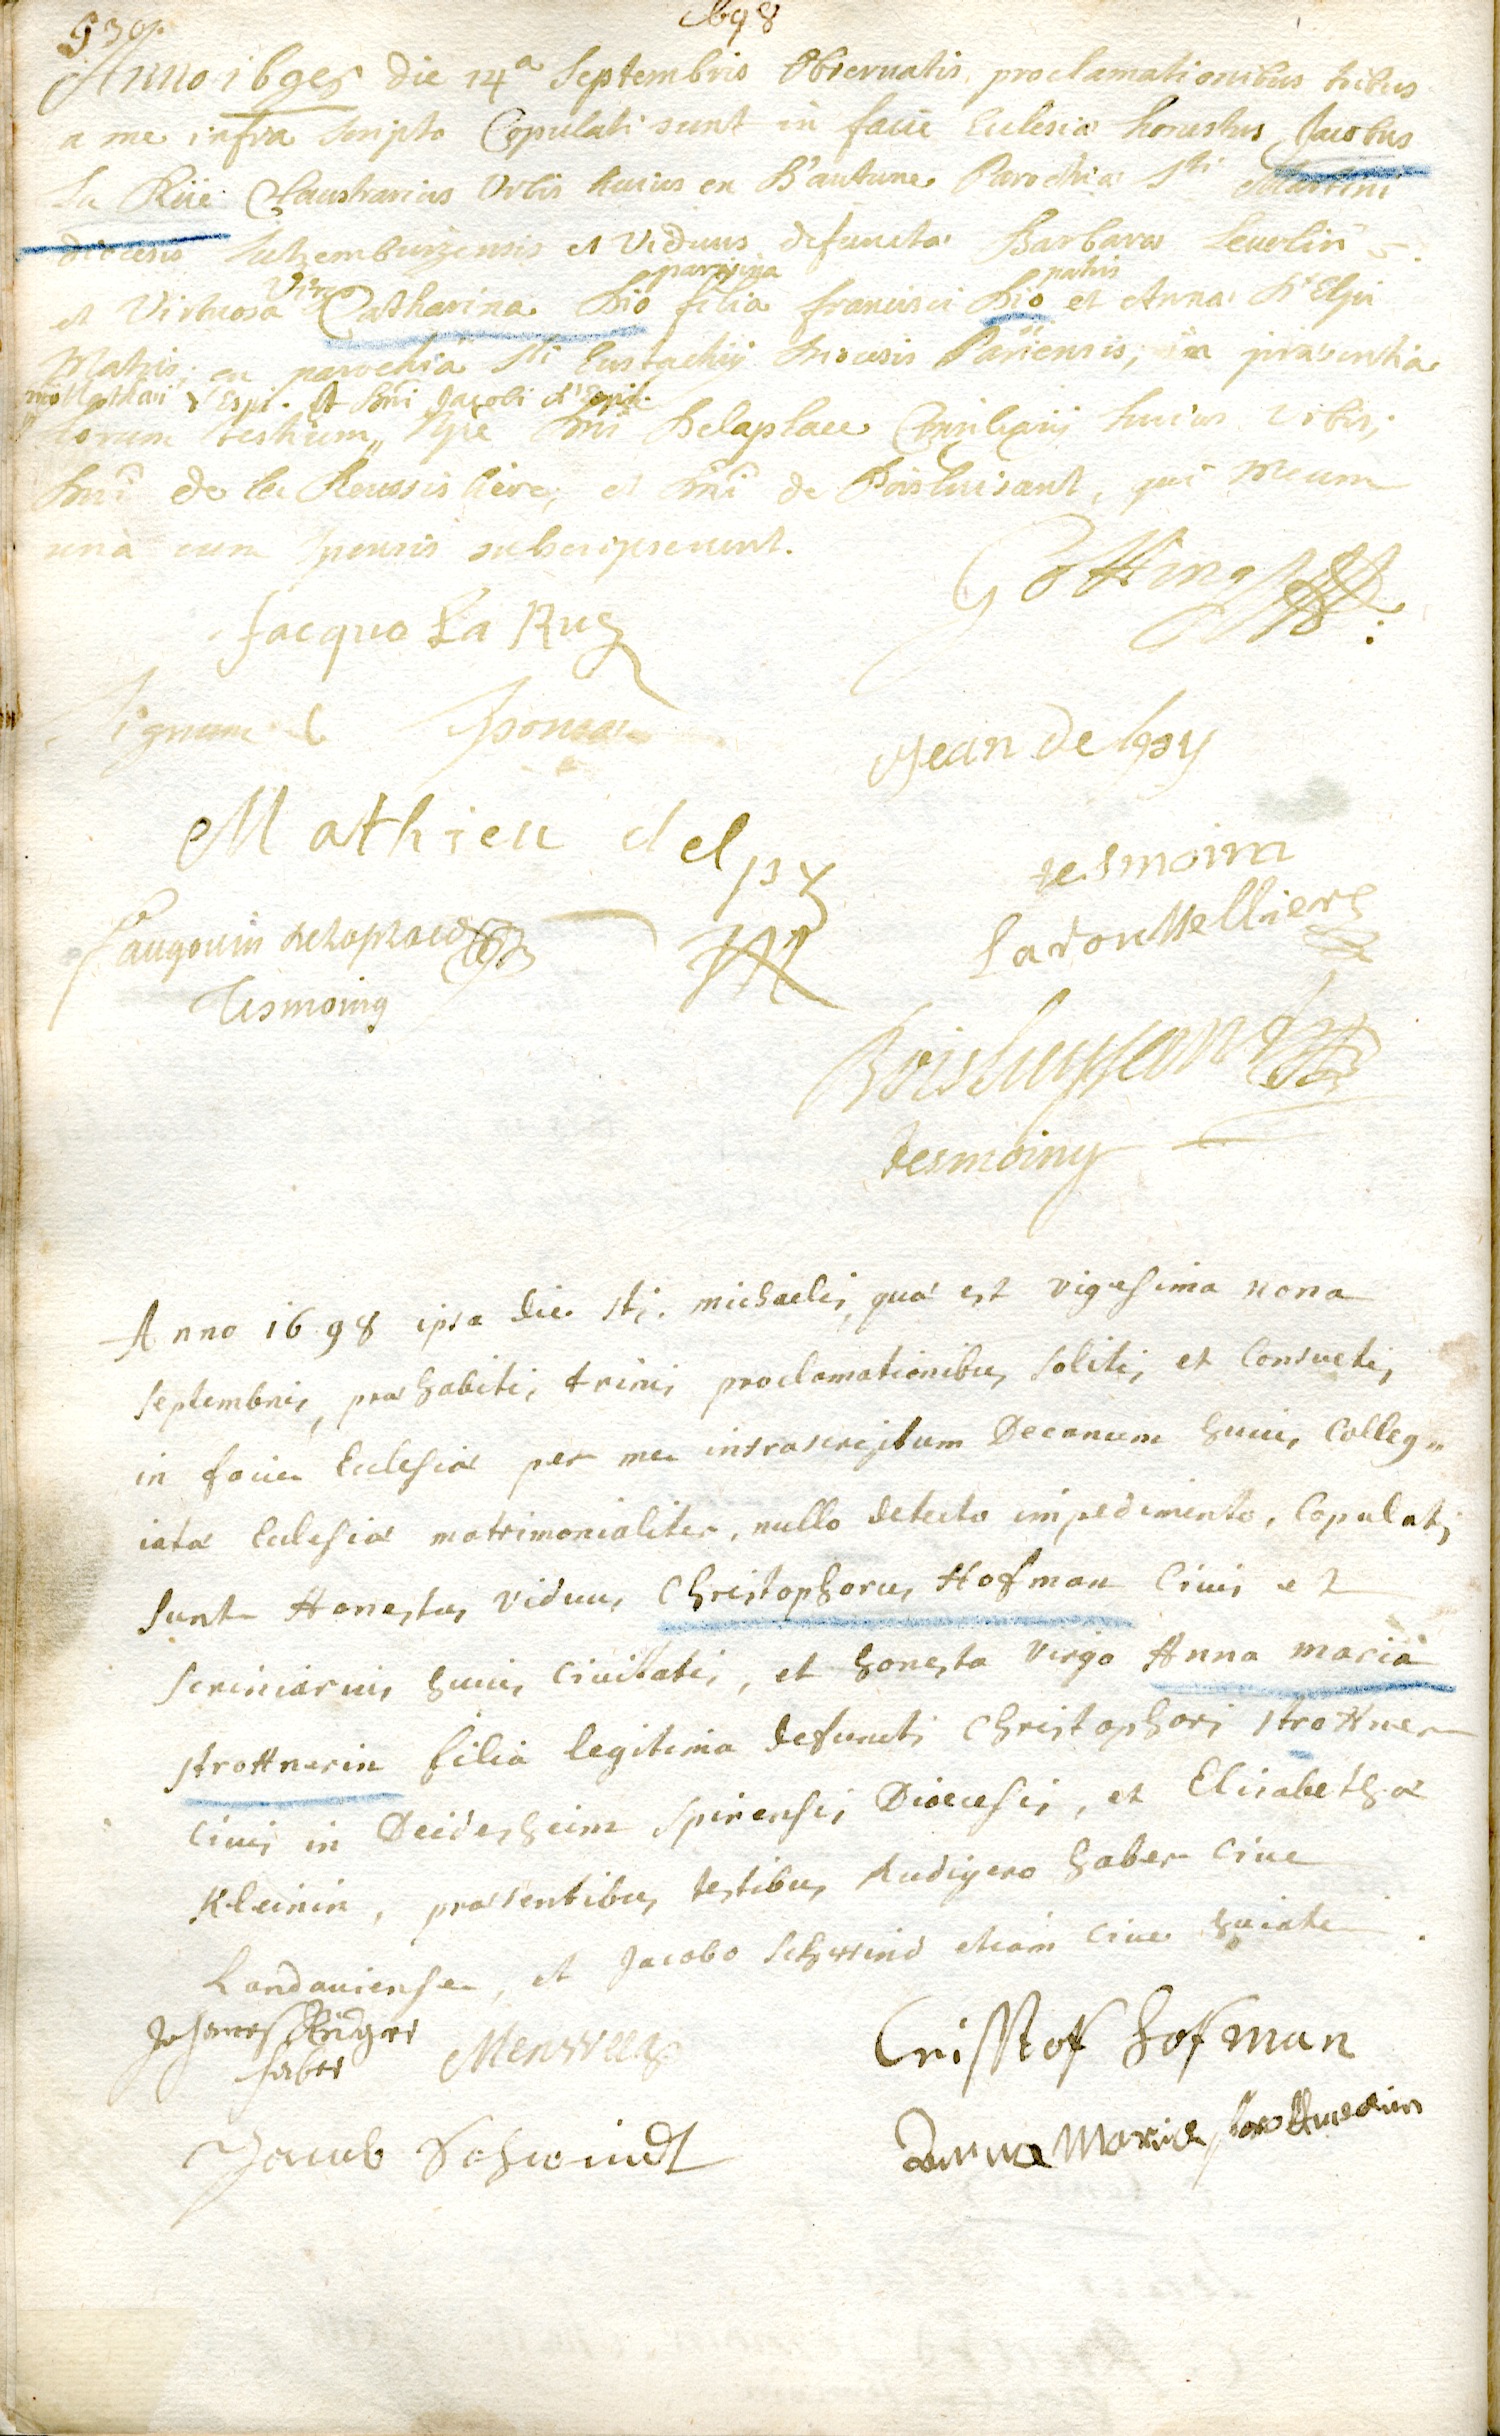 530.
1698
Anno 1698 die 14a Septembris Observatis proclamationibus tribus
a me infra scripto Copulati sunt in facie Ecclesiæ honestus Jacobus
La Rüe Claustrarius Urbis huius ex B'autune Parochia Sti Martini
diocesis Lutzemburgensis et Viduus defunctæ Barbaræ Leuerlin
Virgo parisina patris
et Virtuosa Catharina Dio filia francisci Dio et Anna D'Elpi
Matris, ex parochia Sti Eustachij Diocesis Pariensis, in præsentia
Mathæi d'Espi. et Dni Jacobi d'Espi.
torum testium, Dni Delaplace Consiliarij huius Urbis,
Dni de la Roussiliere, et Dni de Boisluisant, qui mecum
una cum sponsis subscripserunt.
Gotting
Jacque La Rue
Signum sponsæ
Jean delpy
Mathieu delpy
tesmoin
faugouin delaplace
Ladouttelliere
Tesmoing
Boisluysant
tesmoing
Anno 1698 ipsa die sti. michaelis, quæ est vigesima nona
septembris, præhabitis trinis proclamationibus solitis et Consuetis,
in facie Ecclesiæ per me infrascriptum Decanum huius Colleg-
iatæ Ecclesiæ matrimonialiter, nullo detecto impedimento, Copulati
sunt Honestus viduus Christophorus Hofman Civis et
scriniarius huius Civitatis, et honesta virgo Anna maria
strottnerin filia legitima defuncti Christophori strottner
Civis in Deidesheim spirensis Dioecesis, et Elisabethæ
Kleinin, præsentibus testibus Rudigero haber Cive
Landaviense, et Jacobo Schwind etiam Cive huiate.
Johannes Rüdger
faber
Menweeg
Cristtof Hofman
Jacob Schwindt
Anna Maria strottnerin